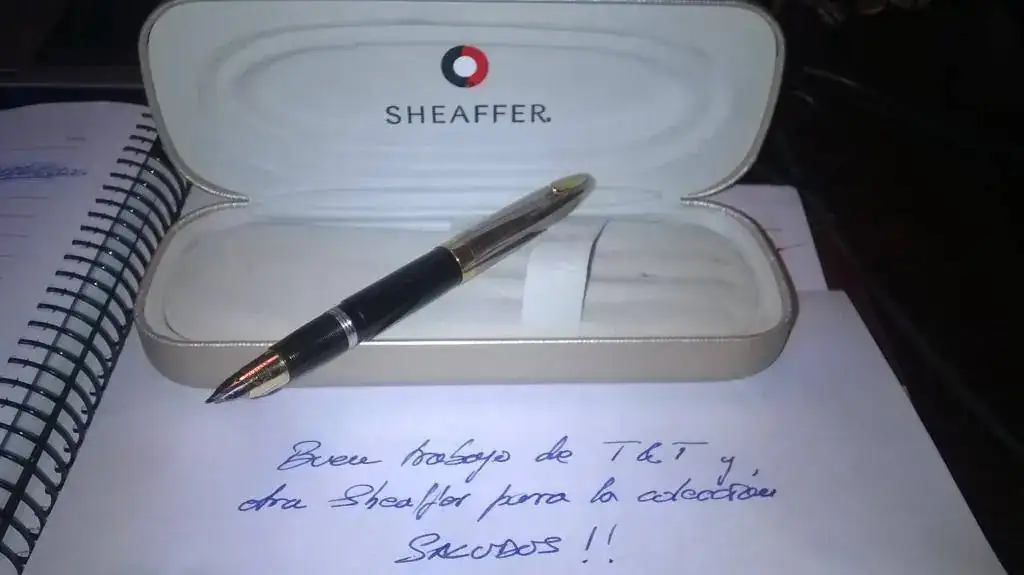 SHEAFFER.
Buen trabajo de T&T y
otra Sheaffer para la colección
SALUDOS!!